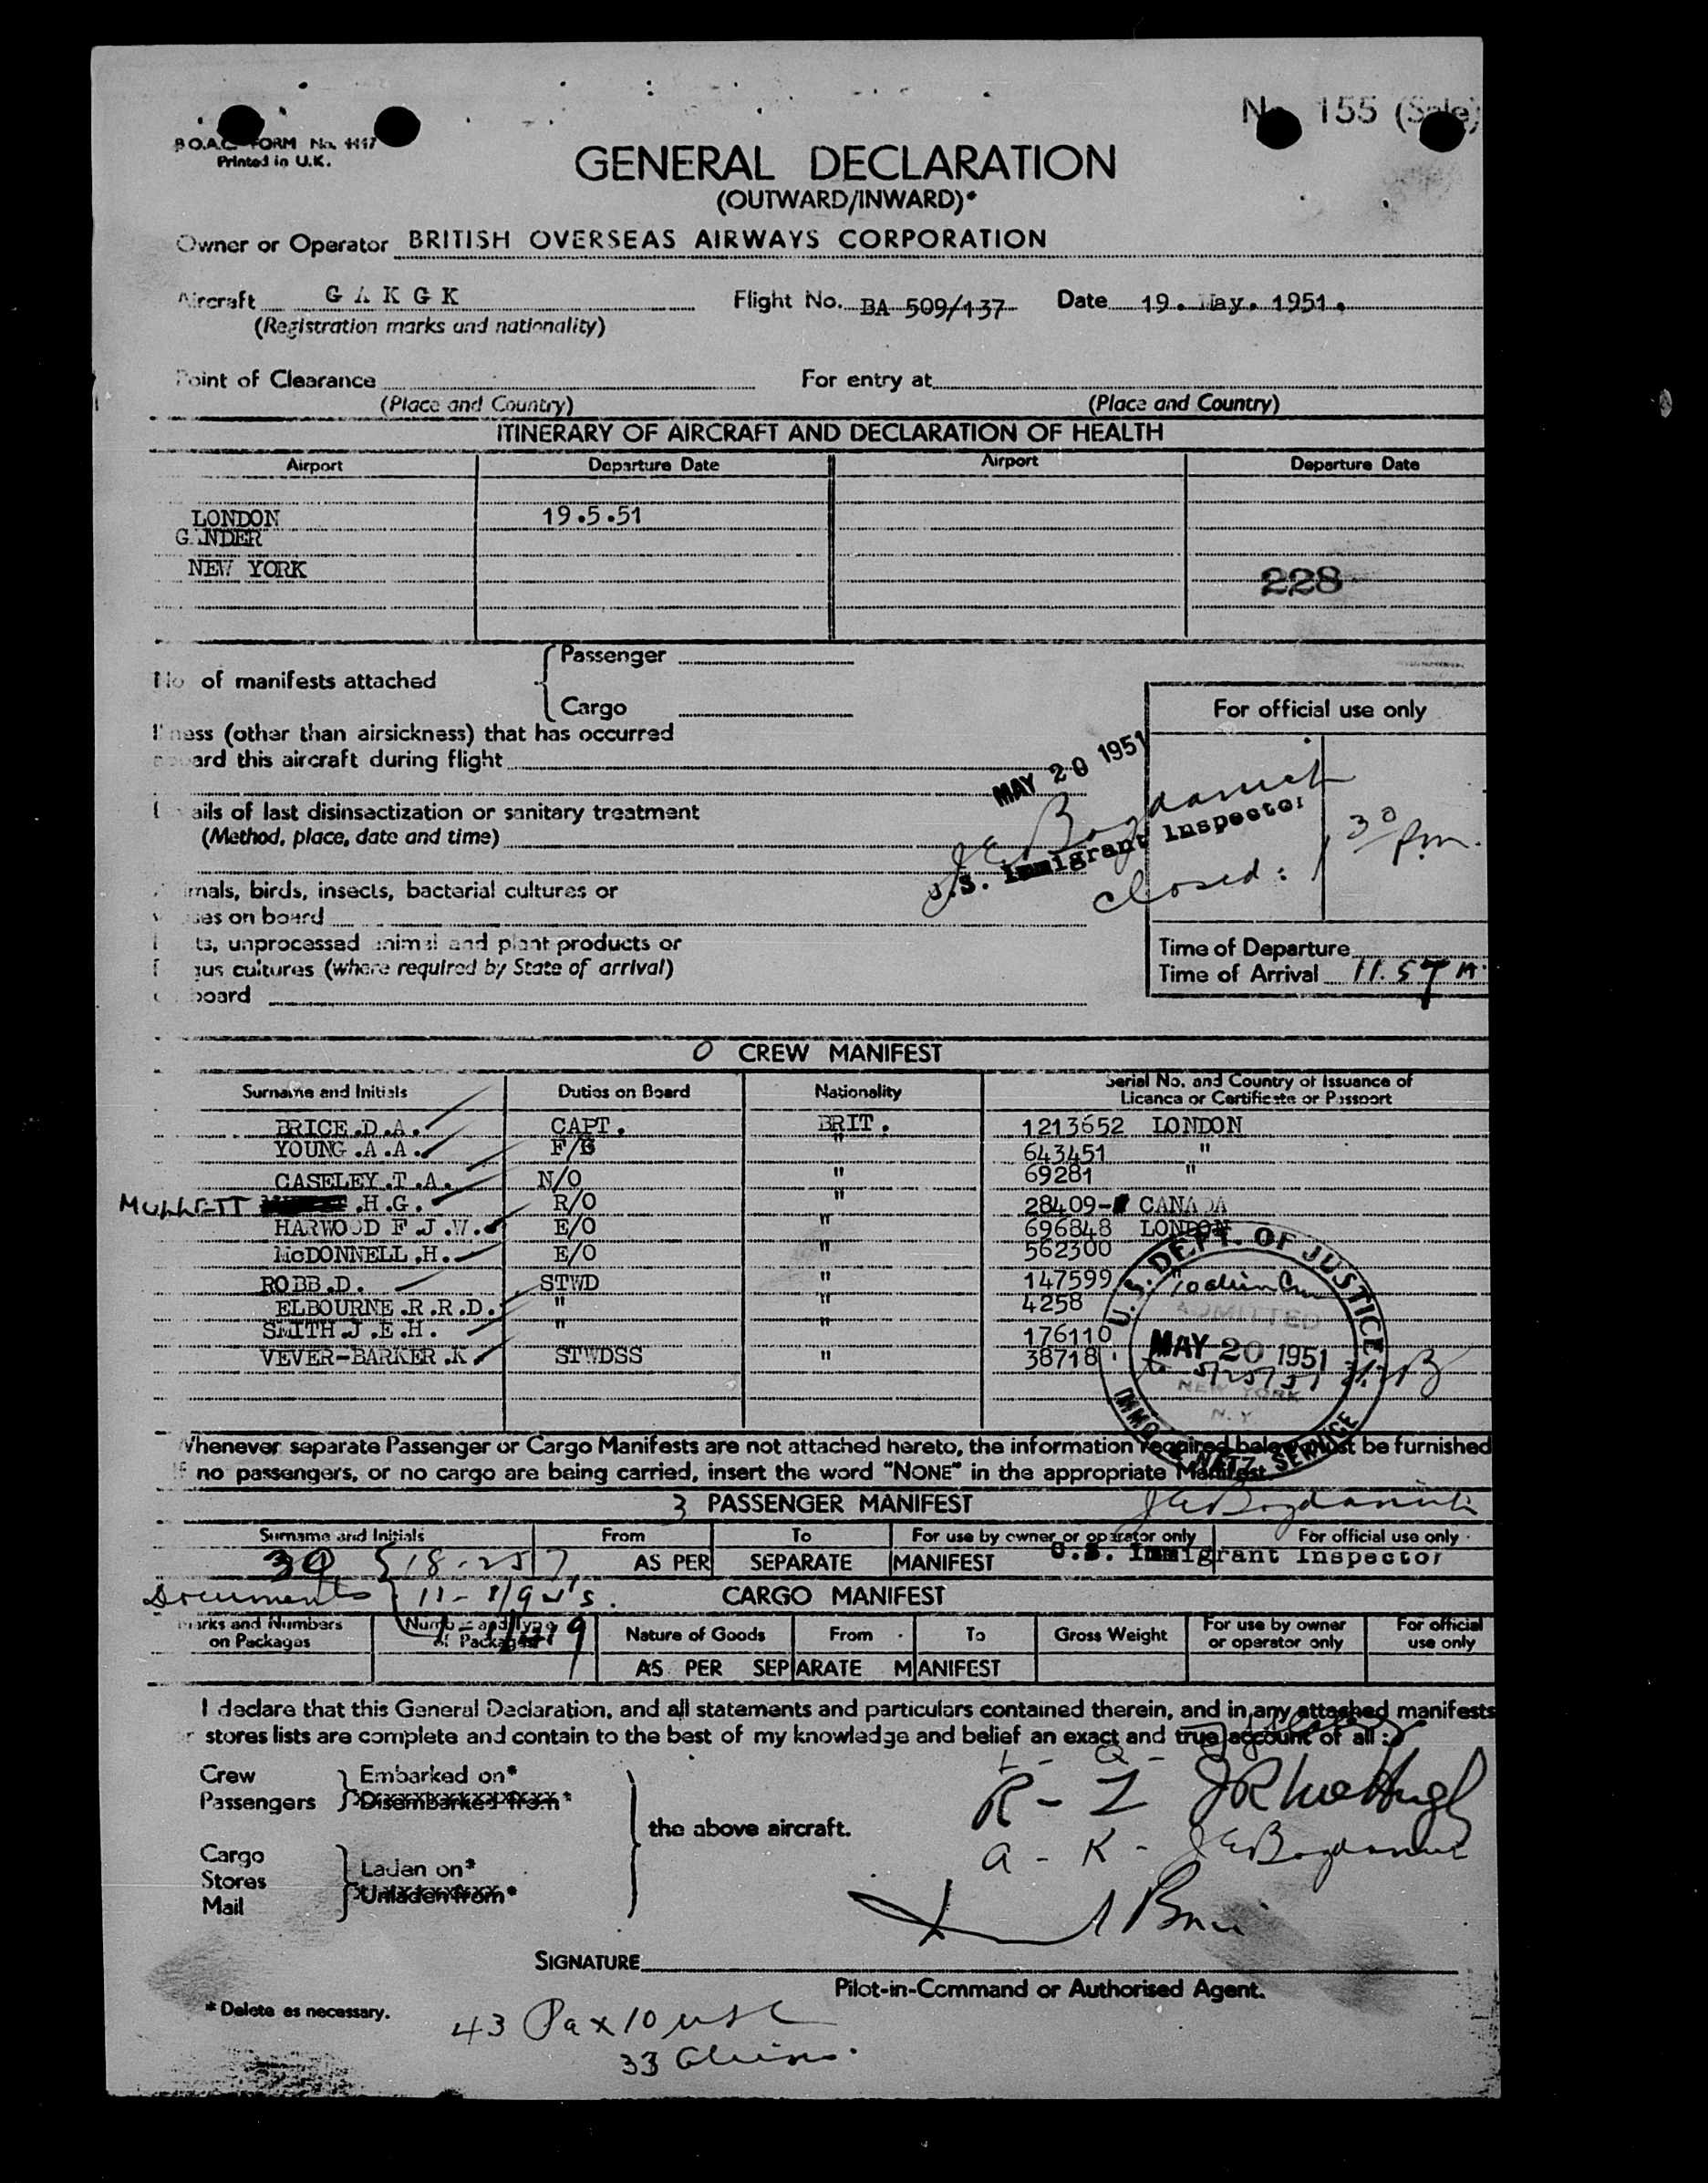 No 155 (Sale)
B.O.A.C. FORM No. 1117
Printed in U.K.
GENERAL DECLARATION
(OUTWARD/INWARD)*
Owner or Operator BRITISH OVERSEAS AIRWAYS CORPORATION
Aircraft G A K G K Flight No. BA 509/137 Date 19. May. 1951.
(Registration marks and nationality)
Point of Clearance For entry at
(Place and Country) (Place and Country)
ITINERARY OF AIRCRAFT AND DECLARATION OF HEALTH
Airport Departure Date Airport Departure Date
LONDON 19.5.51
GANDER
NEW YORK
228
No of manifests attached
Passenger
Cargo
For official use only
Illness (other than airsickness) that has occurred
aboard this aircraft during flight
MAY 20 1951
Details of last disinsectization or sanitary treatment
(Method, place, date and time)
J E Bogdanich
U.S. Immigrant Inspector
closed: 1 30 pm.
Animals, birds, insects, bacterial cultures or
viruses on board
Plants, unprocessed animal and plant products or
fungus cultures (where required by State of arrival)
on board
Time of Departure
Time of Arrival 11.57 A.
0 CREW MANIFEST
Surname and Initials Duties on Board Nationality Serial No. and Country of Issuance of
Licence or Certificate or Passport
BRICE.D.A. CAPT. BRIT. 1213652 LONDON
YOUNG.A.A. F/O " 643451 "
CASELEY.T.A. N/O " 69281 "
MULLETT .H.G. R/O " 28409- CANADA
HARWOOD F.J.W. E/O " 696848 LONDON
McDONNELL.H. E/O " 562300
ROBB.D. STWD " 147599
ELBOURNE.R.R.D. " " 4258
SMITH.J.E.H. " " 176110
VEVER-BARKER.K. STWDSS " 38718
U.S. DEPT. OF JUSTICE
ADMITTED
MAY 20 1951
to 5/25/51
NEW YORK
N.Y.
IMMG. & NATZ. SERVICE
Whenever separate Passenger or Cargo Manifests are not attached hereto, the information required below must be furnished
If no passengers, or no cargo are being carried, insert the word "NONE" in the appropriate Manifest.
3 PASSENGER MANIFEST
J E Bogdanich
Surname and Initials From To For use by owner or operator only For official use only
AS PER SEPARATE MANIFEST
U.S. Immigrant Inspector
30 18-257
Documents 11-
CARGO MANIFEST
Marks and Numbers on Packages Number and Type of Packages Nature of Goods From To Gross Weight For use by owner or operator only For official use only
AS PER SEPARATE MANIFEST
I declare that this General Declaration, and all statements and particulars contained therein, and in any attached manifests
or stores lists are complete and contain to the best of my knowledge and belief an exact and true account of all :
Crew
Passengers
Embarked on*
Disembarked from*
the above aircraft.
Cargo
Stores
Mail
Laden on*
Unladen from*
L - Q -
R - Z
A - K - J E Bogdanich
SIGNATURE
Pilot-in-Command or Authorised Agent.
* Delete as necessary.
43 Pax 10 USC
33 Aliens.